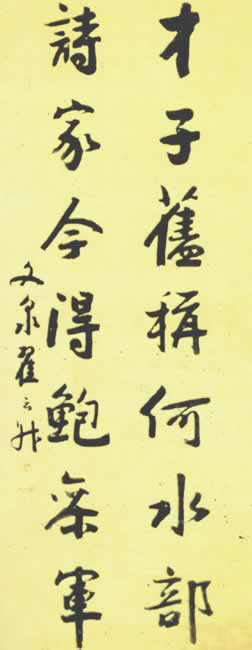 才子舊稱何水部
詩家今得鮑參軍
文泉翟云升